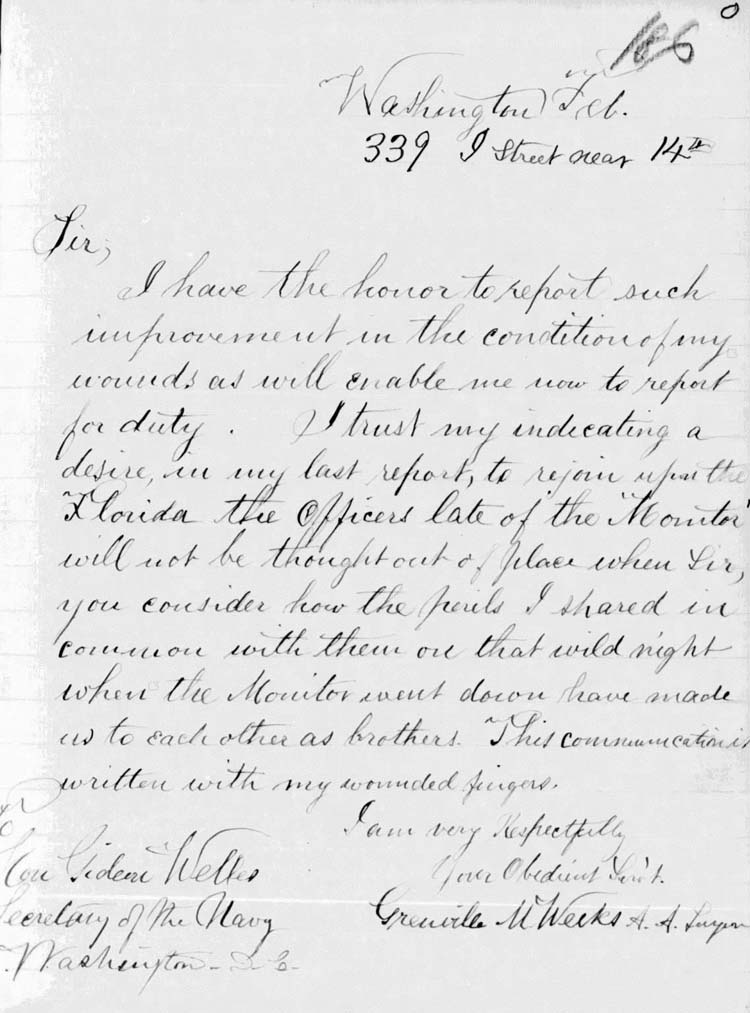 186
Washington Feb.
339 I Street near 14th
Sir,
I have the honor to report such
improvement in the condition of my
wounds as will enable me now to report
for duty. I trust my indicating a
desire, in my last report, to rejoin upon the
Florida the Officers late of the 'Monitor'
will not be thought out of place when Sir,
you consider how the perils I shared in
common with them on that wild night
when the Monitor went down have made
us to each other as brothers. This communication is
written with my wounded fingers.
I am very Respectfully
Your Obedient Serv't.
Hon Gideon Welles
Secretary of the Navy
Washington - D.C.
Grenville M Weeks A. A. Surgeon